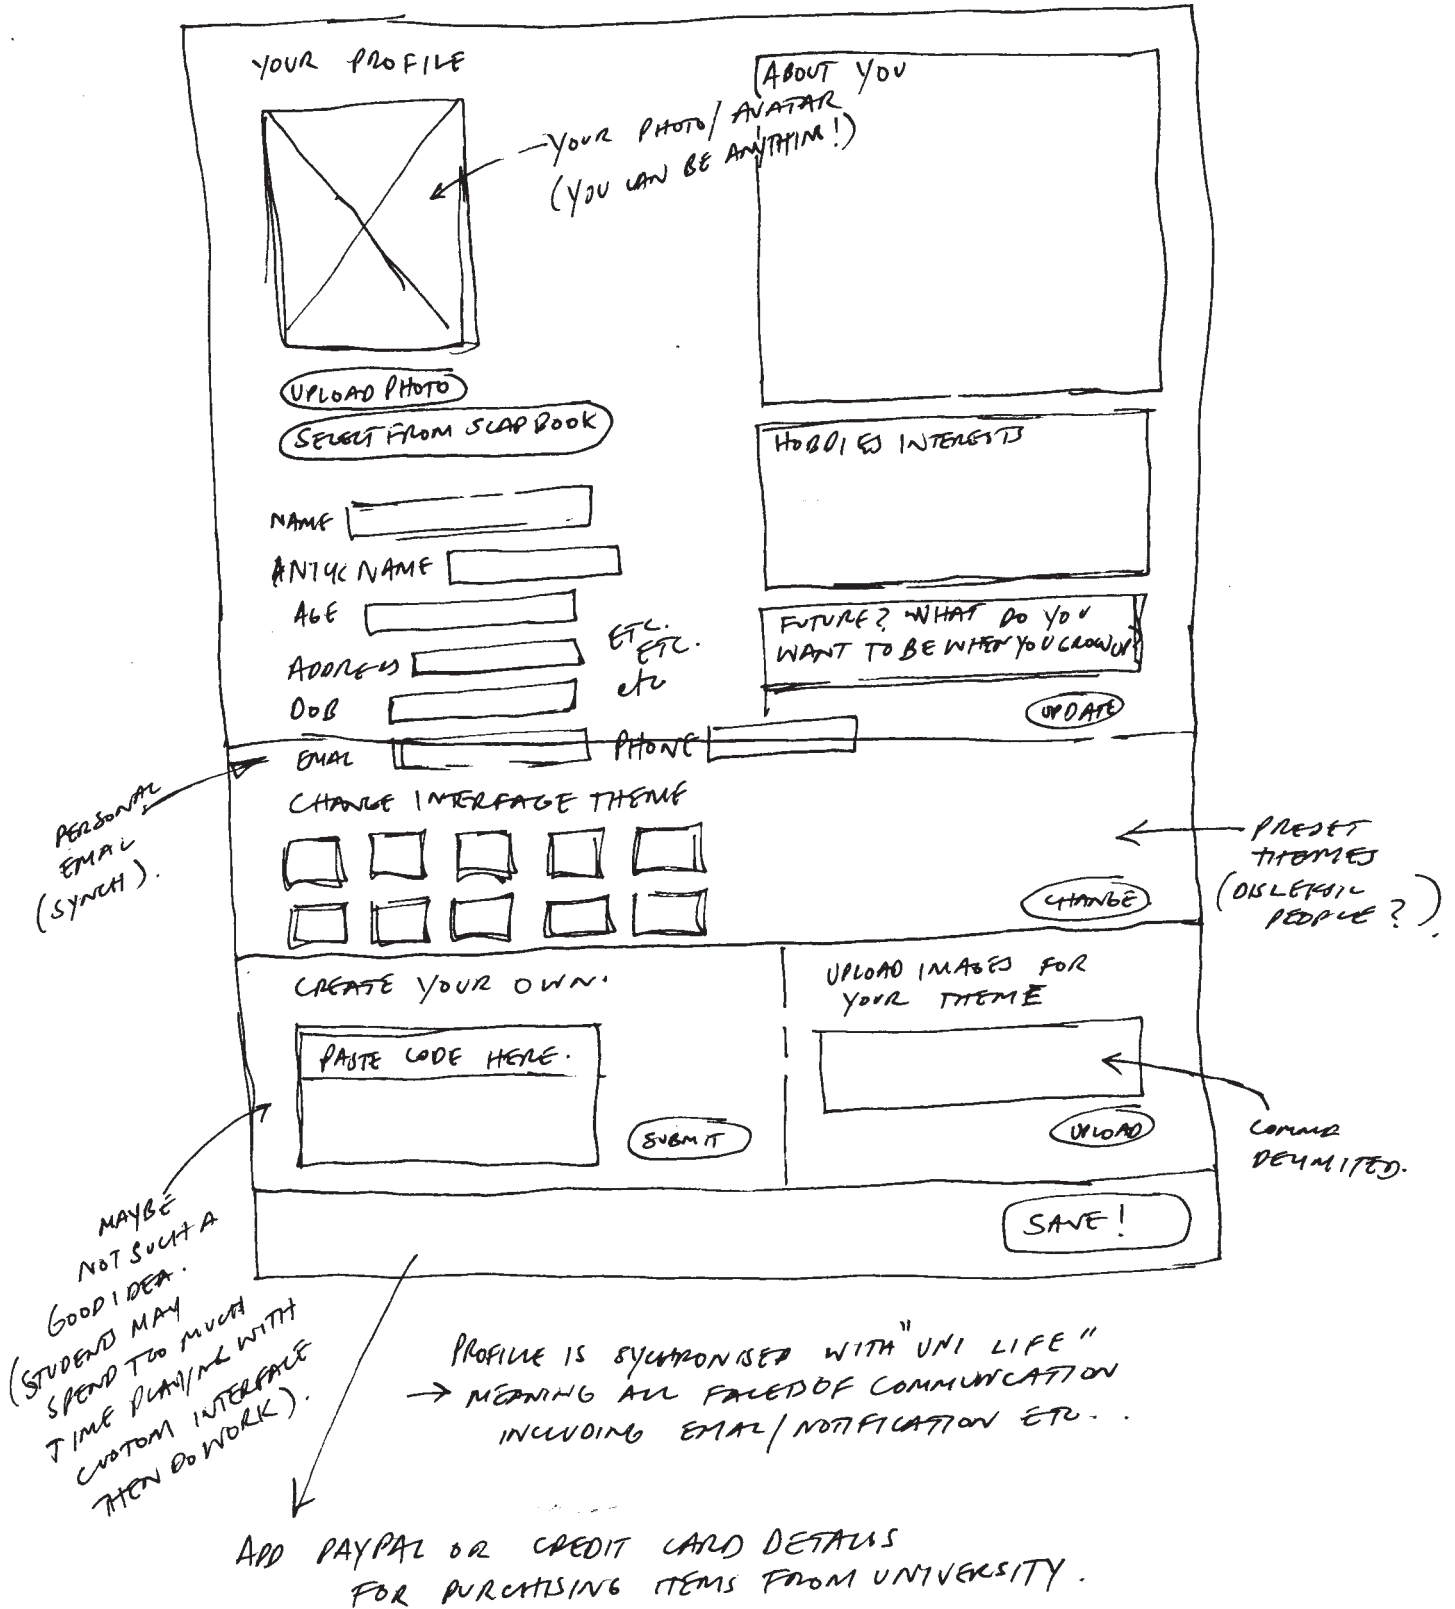 YOUR PROFILE
YOUR PHOTO/AVATAR
(YOU CAN BE ANYTHING!)
UPLOAD PHOTO
SELECT FROM SCAPBOOK
NAME
NAME
AGE
ADDRESS
DOB
ETC.
ETC.
etc
EMAIL
PHONE
ABOUT YOU
HOBBIES INTERESTS
FUTURE? WHAT DO YOU
WANT TO BE WHEN YOU GROW UP
UPDATE
PERSONAL
EMAIL
(SYNCH).
CHANGE INTERFACE THEME
PRESET
THEMES
(DISLEKSIC
PEOPLE?).
CHANGE
CREATE YOUR OWN.
PASTE CODE HERE.
SUBMIT
UPLOAD IMAGES FOR
YOUR THEME
UPLOAD
COMMA
DELIMITED.
SAVE!
MAYBE
NOT SUCH A
GOOD IDEA.
(STUDENTS MAY
SPEND TOO MUCH
TIME PLAYING WITH
CUSTOM INTERFACE
THEN DO WORK).
PROFILE IS SYCHRONISED WITH "UNI LIFE"
→ MEANING ALL FACETS OF COMMUNICATION
INCLUDING EMAIL/NOTIFICATION ETC..
ADD PAYPAL OR CREDIT CARD DETAILS
FOR PURCHASING ITEMS FROM UNIVERSITY.